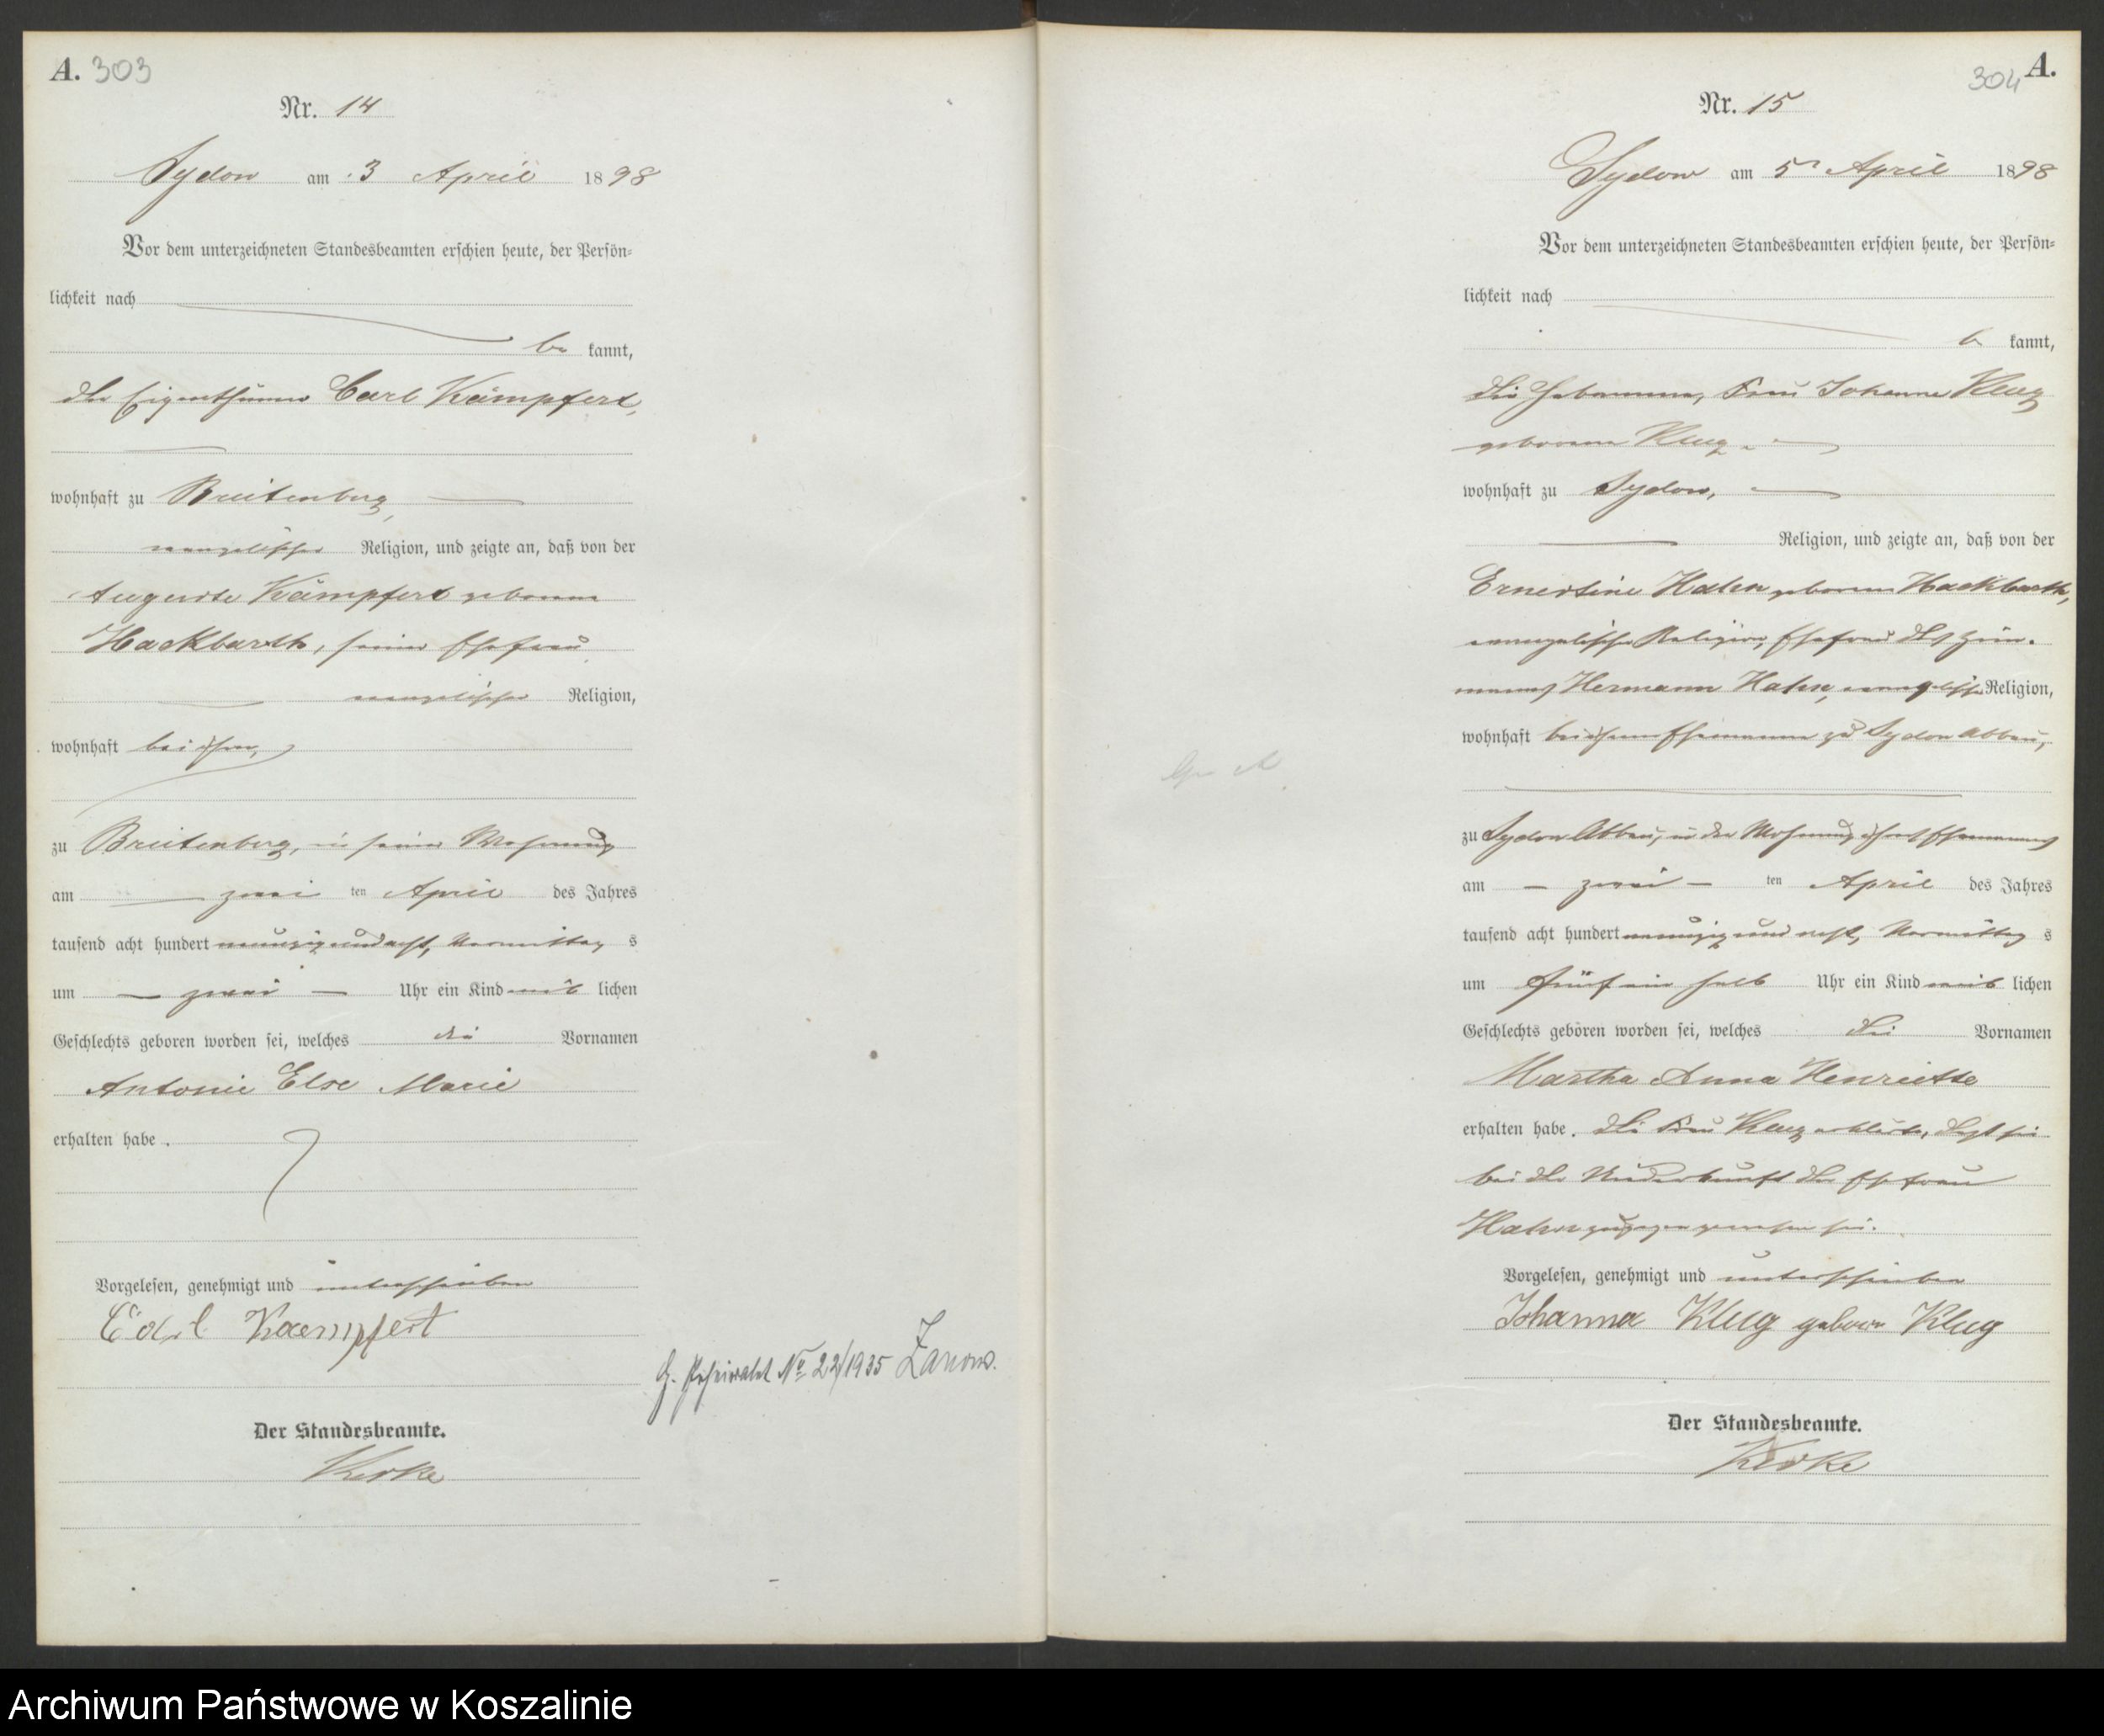 A. 303
Nr. 14
Sydow am 3 April 1898
Vor dem unterzeichneten Standesbeamten erschien heute, der Persön=
lichkeit nach
be kannt,
der Eigenthümer Carl Kämpfert,
wohnhaft zu Breitenberg,
evangelischer Religion, und zeigte an, daß von der
Auguste Kämpfert geborene
Hackbarth, seiner Ehefrau
evangelischer Religion,
wohnhaft bei ihm,
zu Breitenberg, in seiner Wohnung
am zwei ten April des Jahres
tausend acht hundert neunzig und acht, Vormittag s
um zwei Uhr ein Kind weib lichen
Geschlechts geboren worden sei, welches die Vornamen
Antonie Else Marie
erhalten habe.
Vorgelesen, genehmigt und unterschrieben
Carl Kaempfert
Der Standesbeamte.
G. Nº 22/1935 Zanow.
304 A.
Nr. 15
Sydow am 5 April 1898
Vor dem unterzeichneten Standesbeamten erschien heute, der Persön=
lichkeit nach
be kannt,
die Hebamme, Frau Johanna Klug
geborene Klug
wohnhaft zu Sydow,
Religion, und zeigte an, daß von der
Ernestine Hahn geborene Hackbarth,
evangelischer Religion, Ehefrau des Zim-
manns Hermann Hahn, evangelischer Religion,
wohnhaft bei ihrem Ehemanne zu Sydow Abbau,
zu Sydow Abbau, in der Wohnung ihres Ehemannes
am zwei ten April des Jahres
tausend acht hundert neunzig und acht, Vormittag s
um fünf ein halb Uhr ein Kind weib lichen
Geschlechts geboren worden sei, welches die Vornamen
Martha Anna Henriette
erhalten habe. Die Frau Klug erklärte, daß sie
bei der Niederkunft der Ehefrau
Hahn zugegen gewesen sei.
Vorgelesen, genehmigt und unterschrieben
Johanna Klug geborn Klug
Der Standesbeamte.
Archiwum Państwowe w Koszalinie